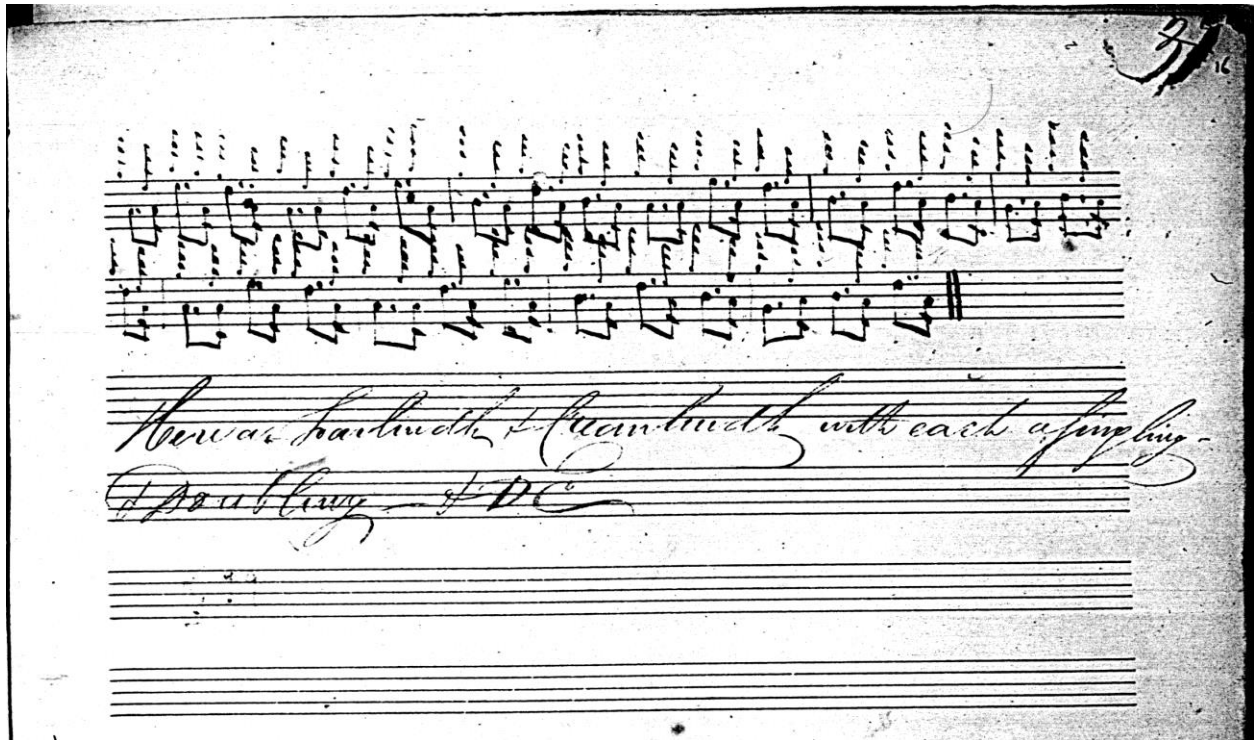 31
16
Here a Taorluidh & Creanluidh with each a Singling
& Doubling — & DC